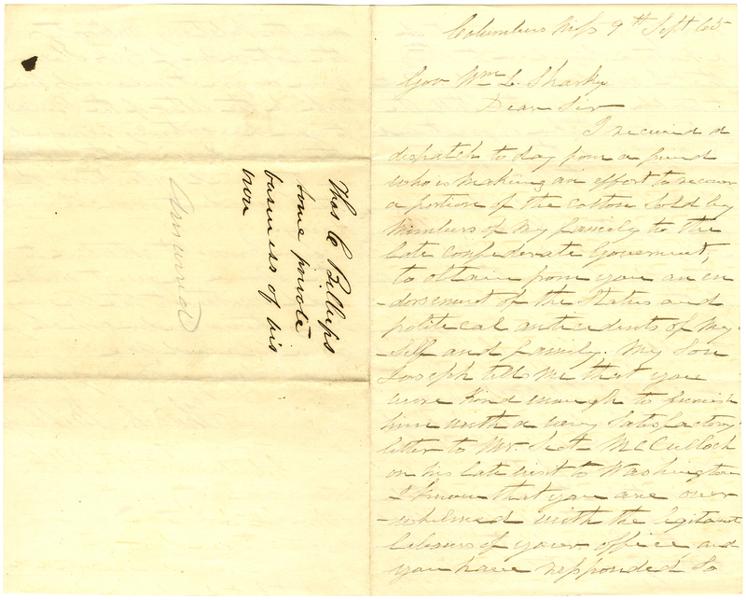 Thos C Billups
some private
business of his
own
Answered
Columbus Miss 9th Sept 65
Gov. Wm L. Sharky
Dear Sir
I received a
dispatch to day from a friend
who is making an effort to recover
a portion of the cotton sold by
members of my family to the
late Confederate Government,
to obtain from you an en
-dorsement of the status and
political antecedents of my
-self and family. My Son
Joseph tells me that you
were kind enough to furnish
him with a very satisfactory
letter to Mr. Sect. McCulloch
on his late visit to Washington
I know that you are over
-whelmed with the legitimate
labours of your office and
you have responded to